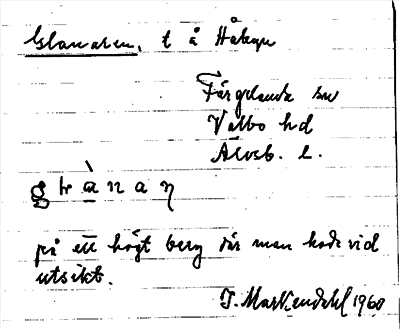 Glanaren, t å
Färgelanda sn
Valbo hd
Älvsb. l.
på ett högt berg där man hade vid
utsikt.
J. Markendahl 1960